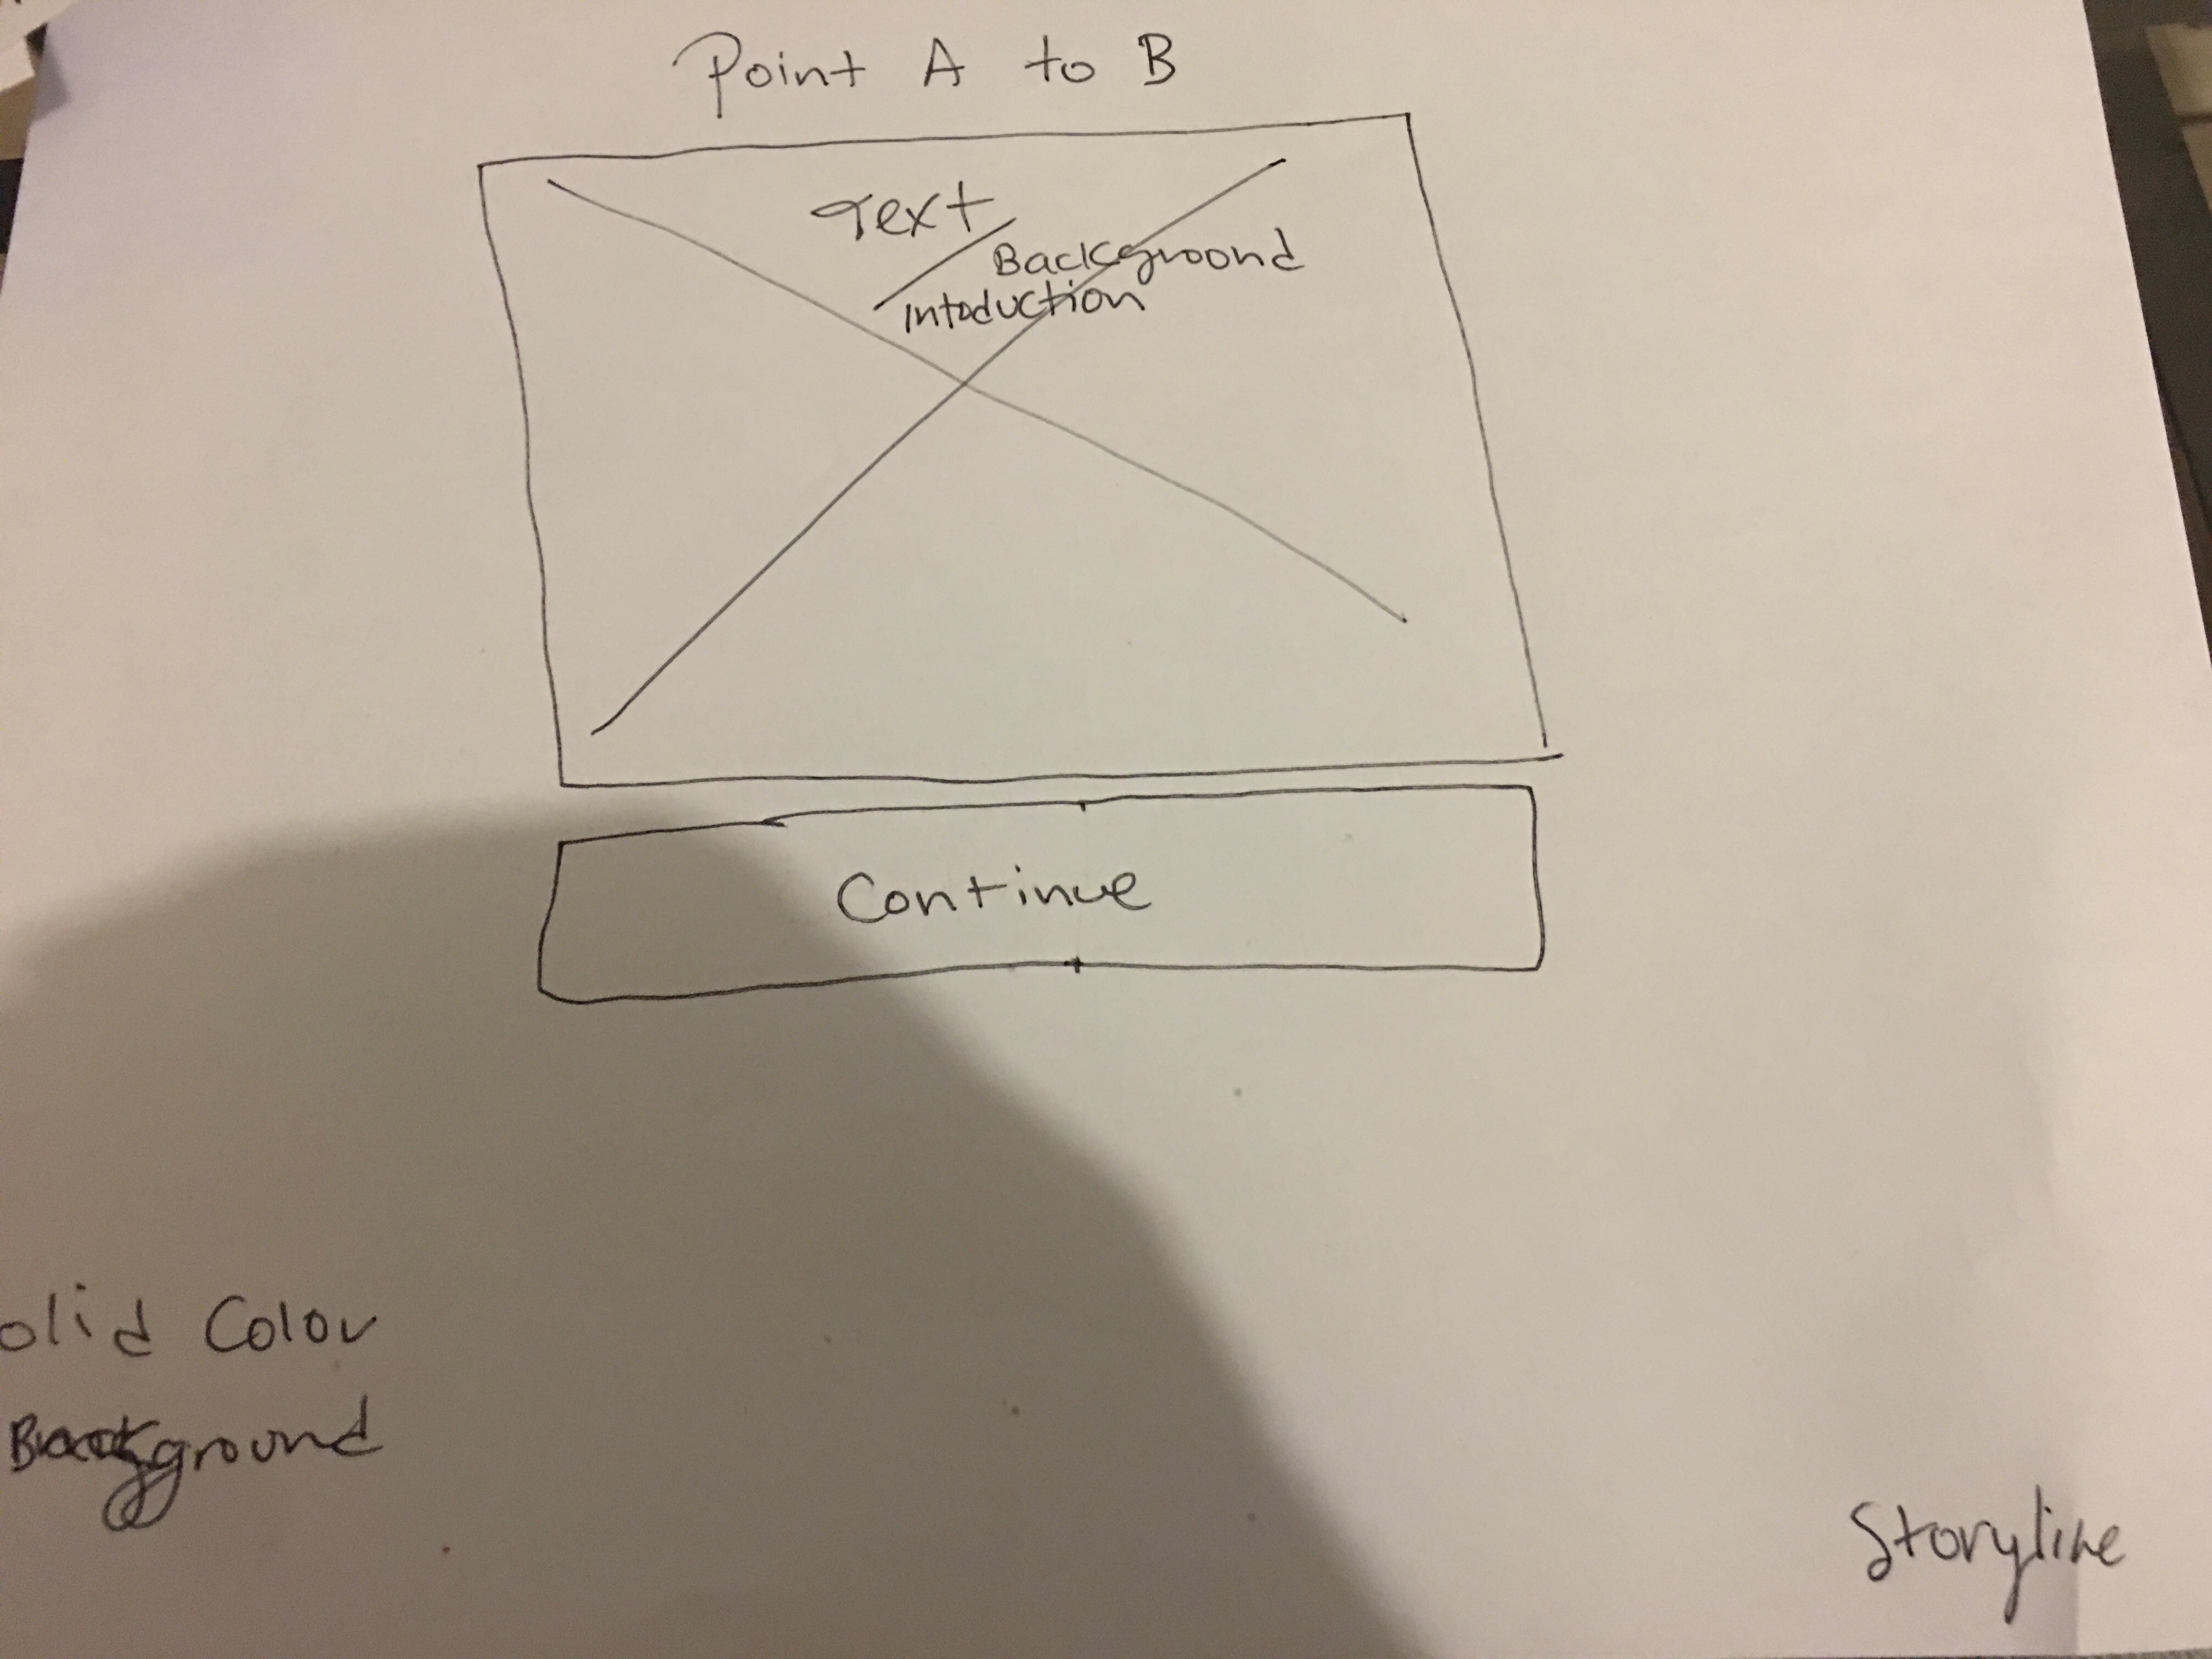 Point A to B
Text
Backgroond
Intoduction
Continue
olid Color
Background
Storyline